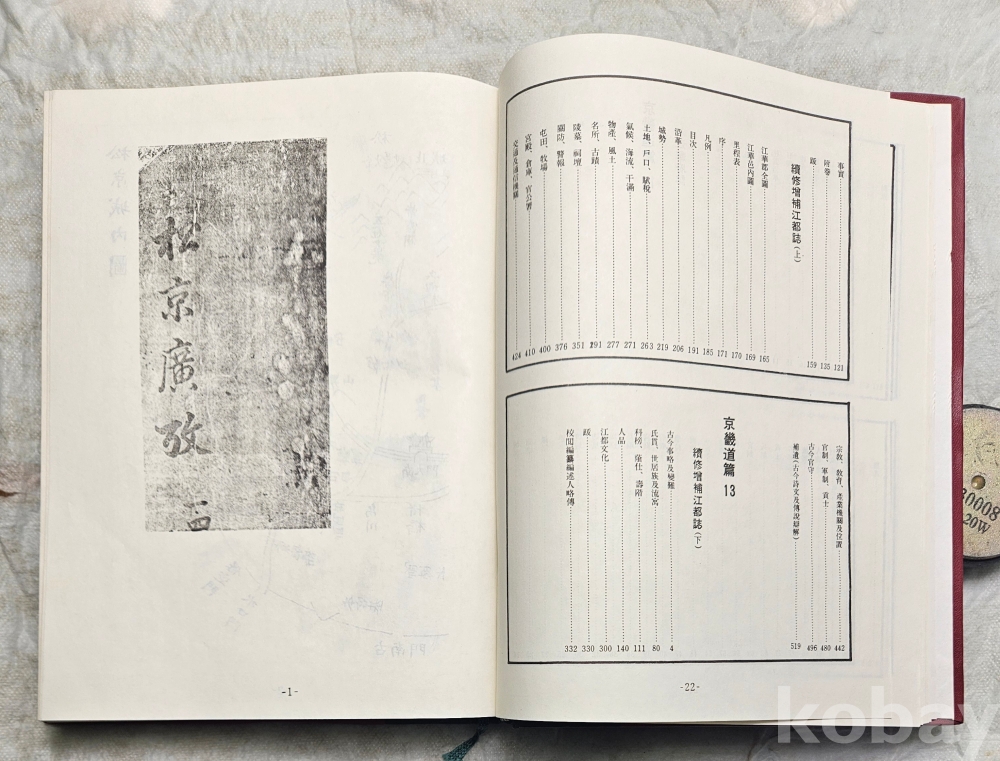 松京廣攷
-1-
事實 121
附卷 135
跋 159
續修增補江都誌(上)
江華郡全圖 165
江華邑內圖 169
里程表 170
序 171
凡例 185
目次 191
沿革 206
城勢 219
土地、戶口、賦稅 263
氣候、海流、干滿 271
物產、風土 277
名所、古蹟 291
陵墓、祠壇 351
關防、警報 376
屯田、牧場 400
宮殿、倉庫、官公署 410
交通及通信機關 424
宗敎、敎育、產業機關及位置 442
官制、軍制、貢士 480
古今官守 496
補遺(古今詩文及傳說辯解) 519
京畿道篇 13
續修增補江都誌(下)
古今事略及變難 4
氏貫、世居族及流寓 80
科榜、蔭仕、壽階 111
人品 140
江都文化 300
跋 330
校閱編纂編述人略傳 332
-22-
20W
kobay